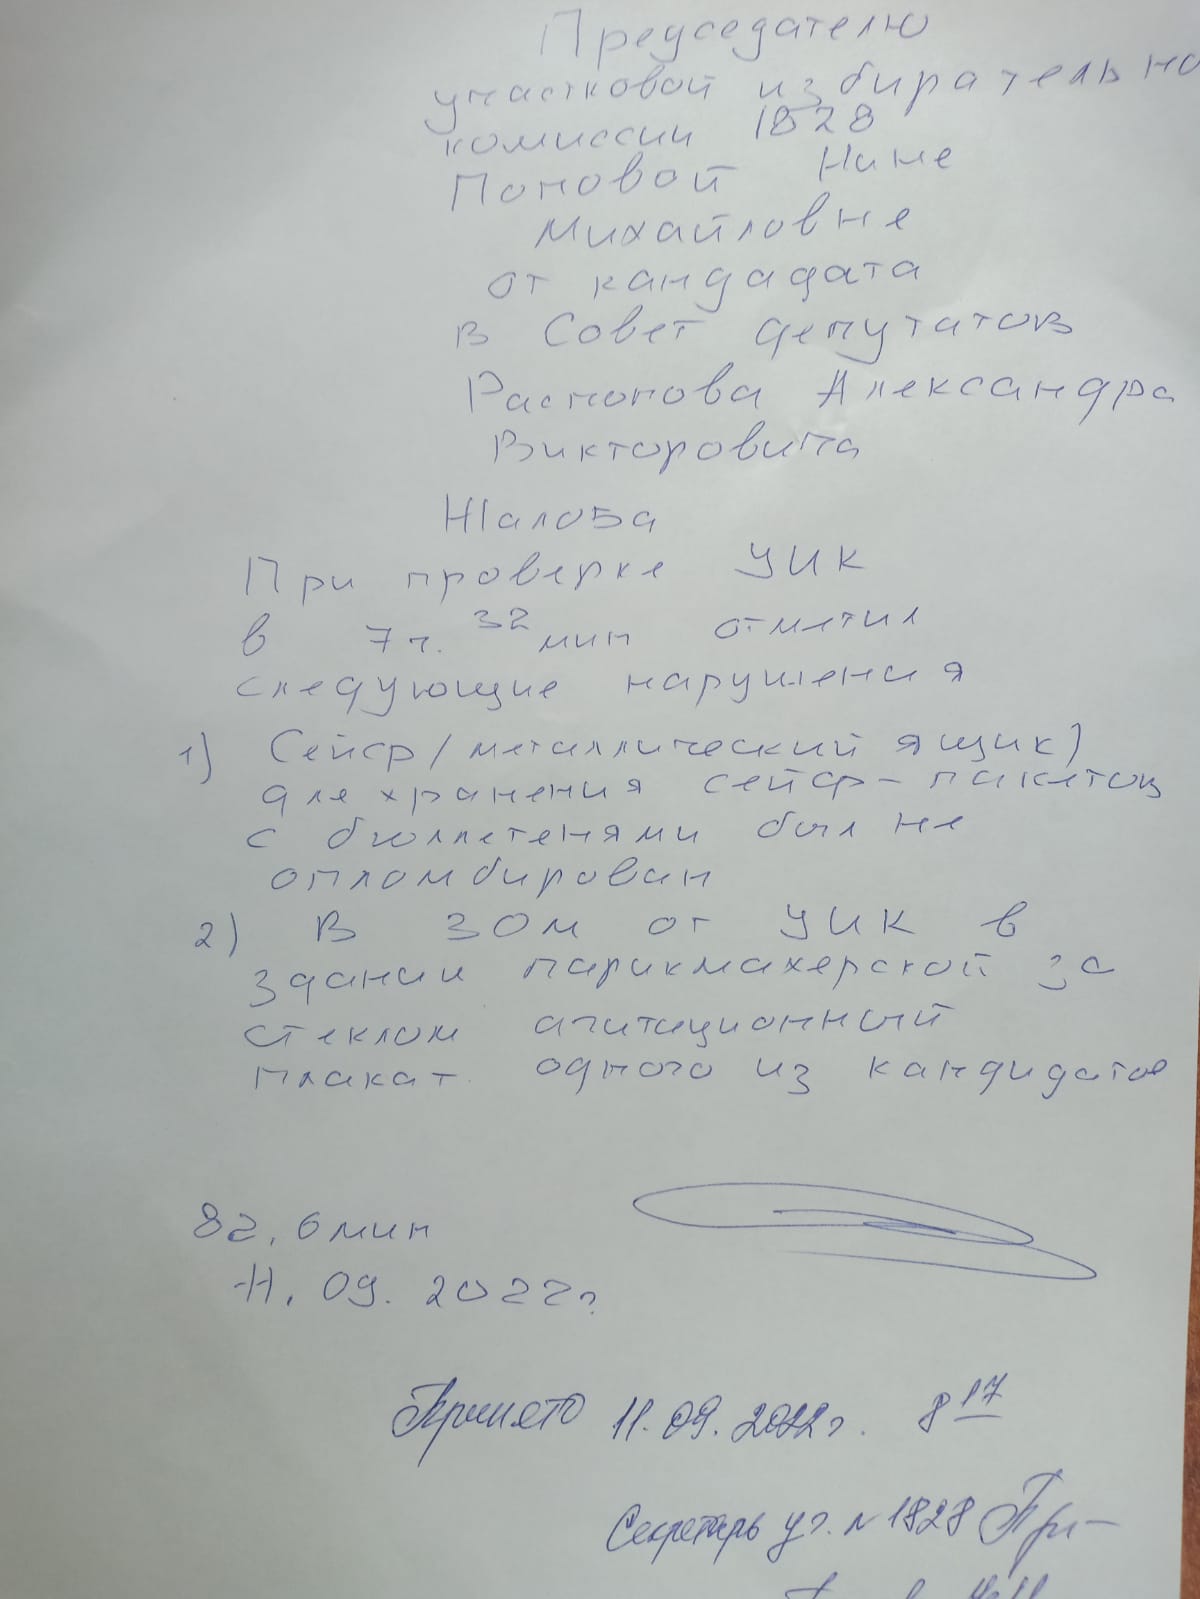 Председателю
участковой избирательно
комиссии 1828
Поповой Нине
Михайловне
от кандадата
в Совет депутатов
Распопова Александра
Викторовича
Жалоба
При проверке УИК
в 7ч. 32 мин отметил
следующие нарушения
1) Сейф/металлический ящик)
для хранения сейф-пакетов
с бюллетенями был не
опломбирован
2) В 30м от УИК в
здании парикмахерской за
стеклом агитиционный
плакат одного из кандидатов
8г. 6 мин
11. 09. 2022г.
Принято 11.09.2022г. 8 17
Секретарь уч. № 1828